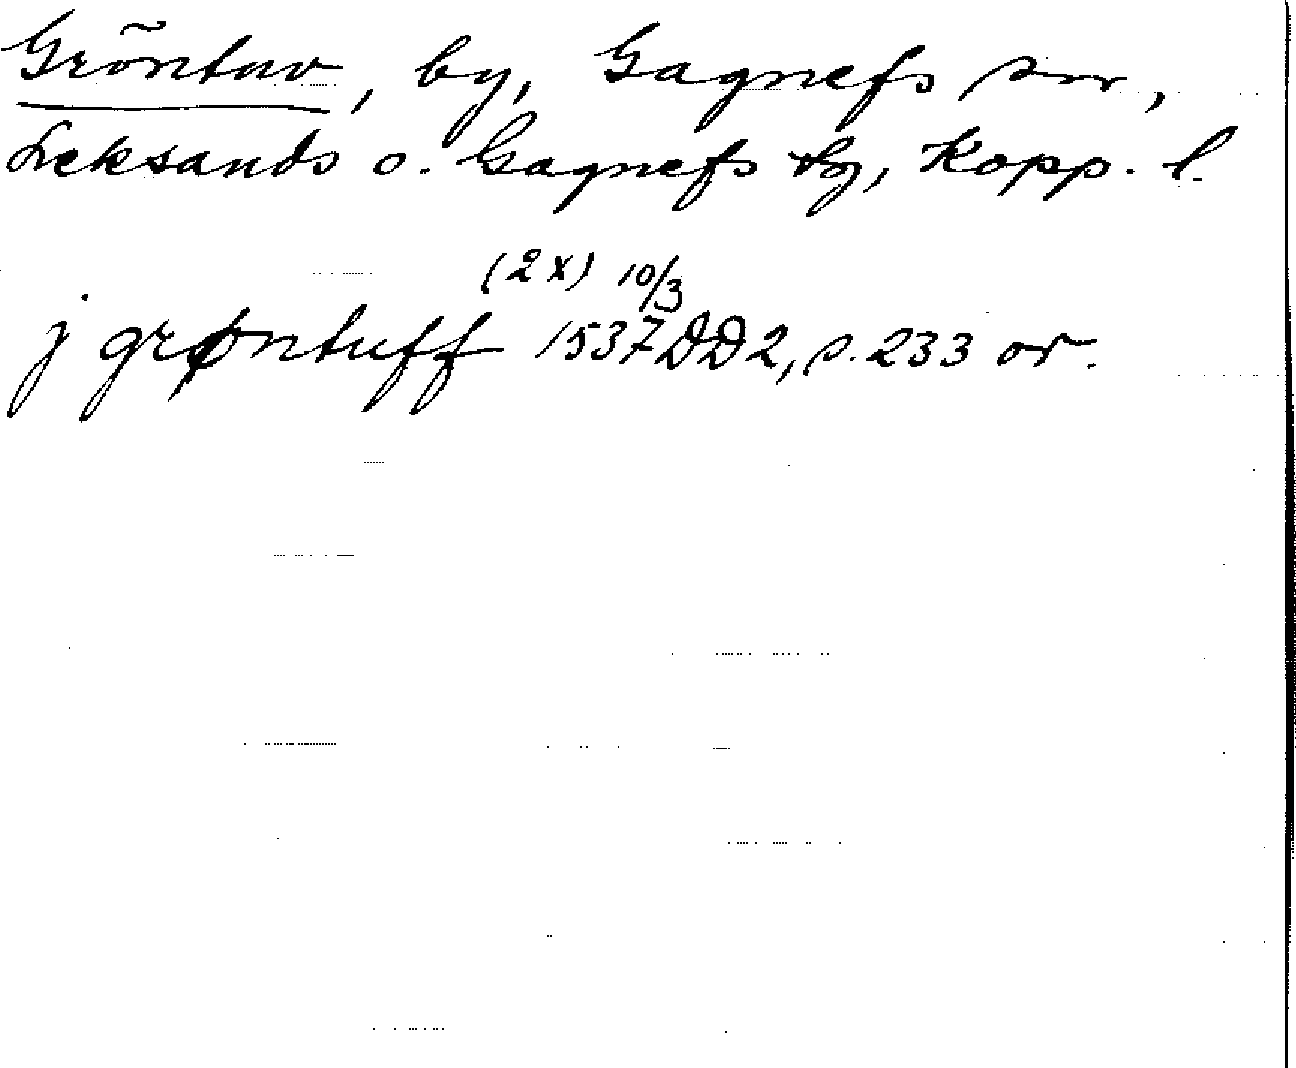 Gröntuv, by, Gagnefs sn,
Leksands o. Gagnefs tg, Kopp. l.
(2x) 10/3
j grøntuff 1537 DD2, s. 233 or.